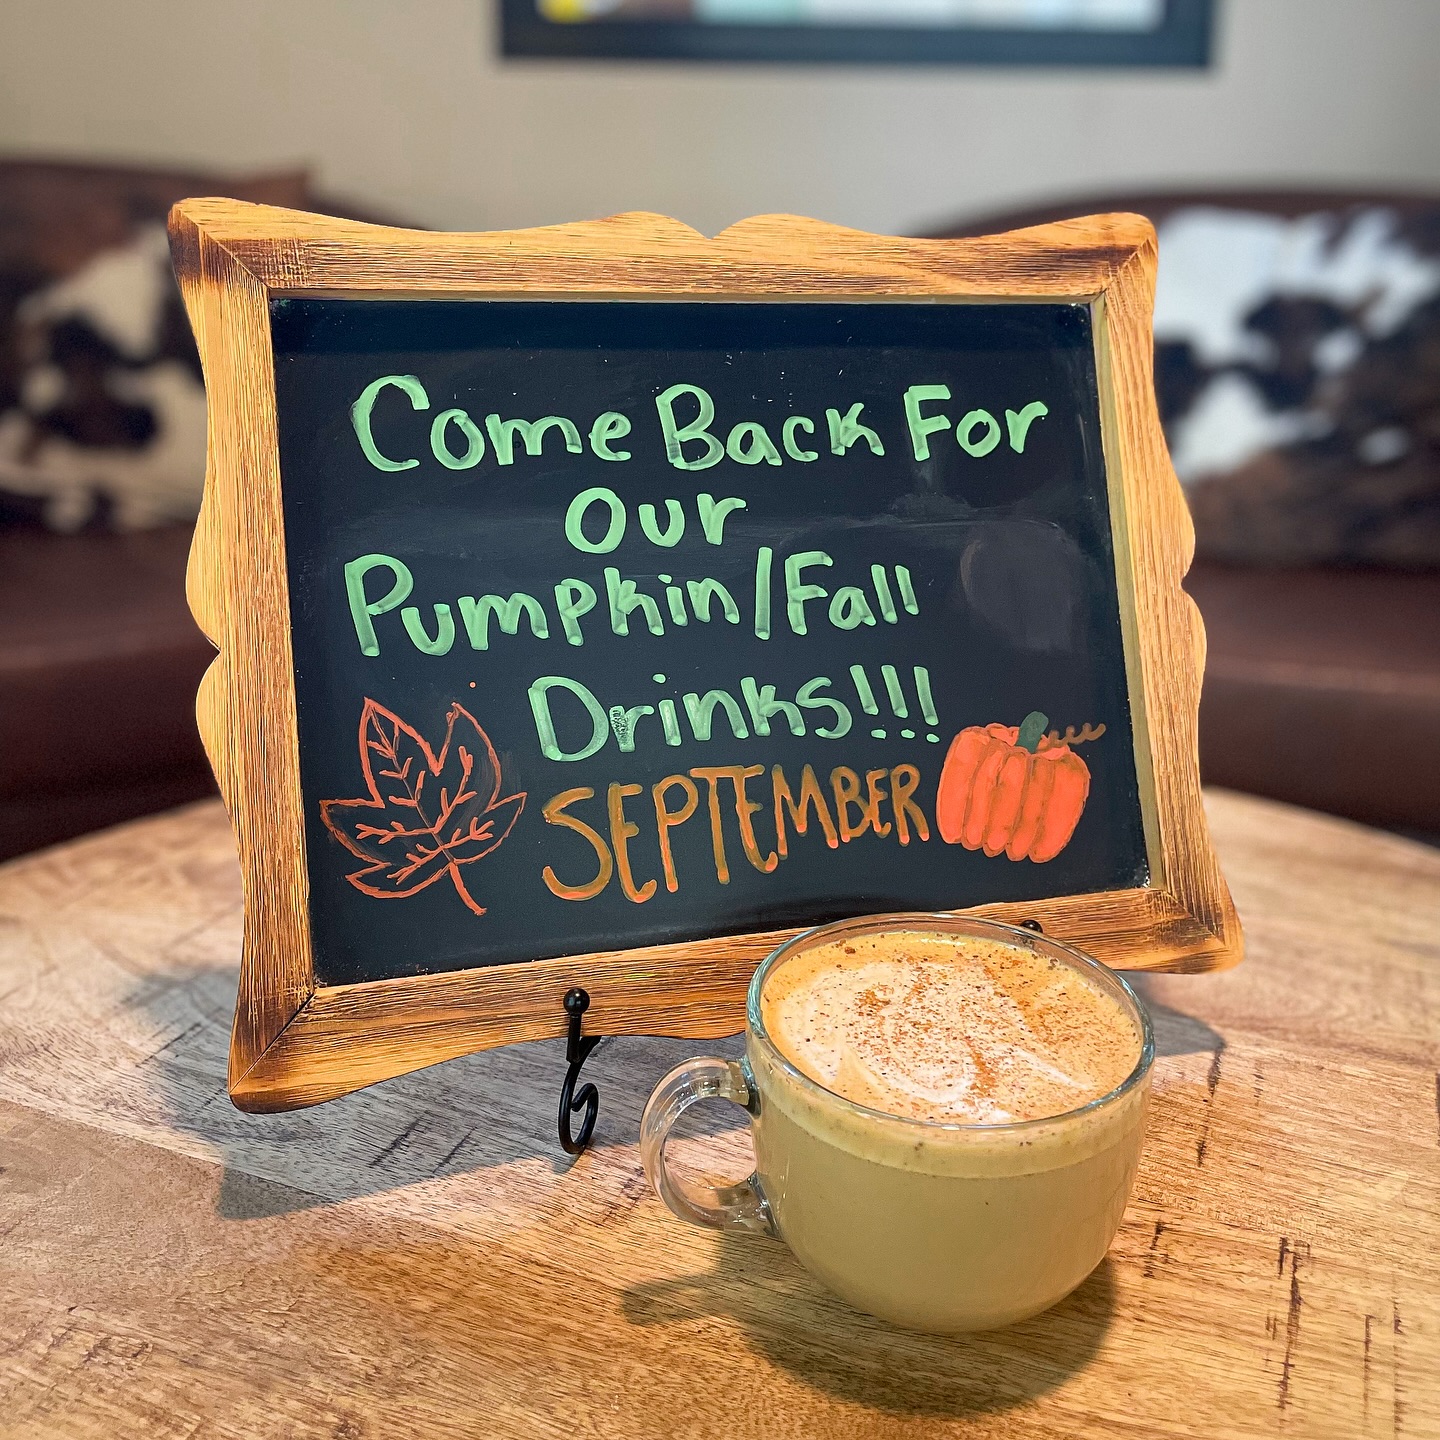 Come Back For
Our
Pumpkin/Fall
Drinks!!!
SEPTEMBER